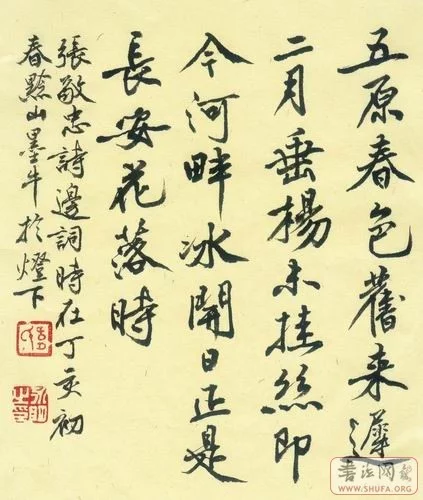 五原春色舊来遲
二月垂楊未挂絲即
今河畔冰開日正是
長安花落時
張敬忠詩邊詞時在丁亥初
春黟山墨牛於燈下
書法网
WWW.SHUFA.ORG